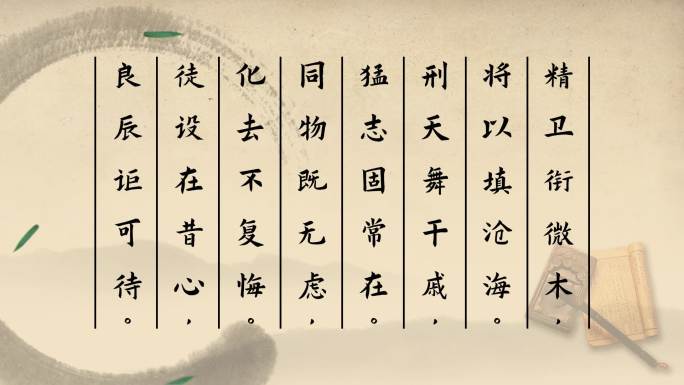 精卫衔微木，
将以填沧海。
刑天舞干戚，
猛志固常在。
同物既无虑，
化去不复悔。
徒设在昔心，
良辰讵可待。